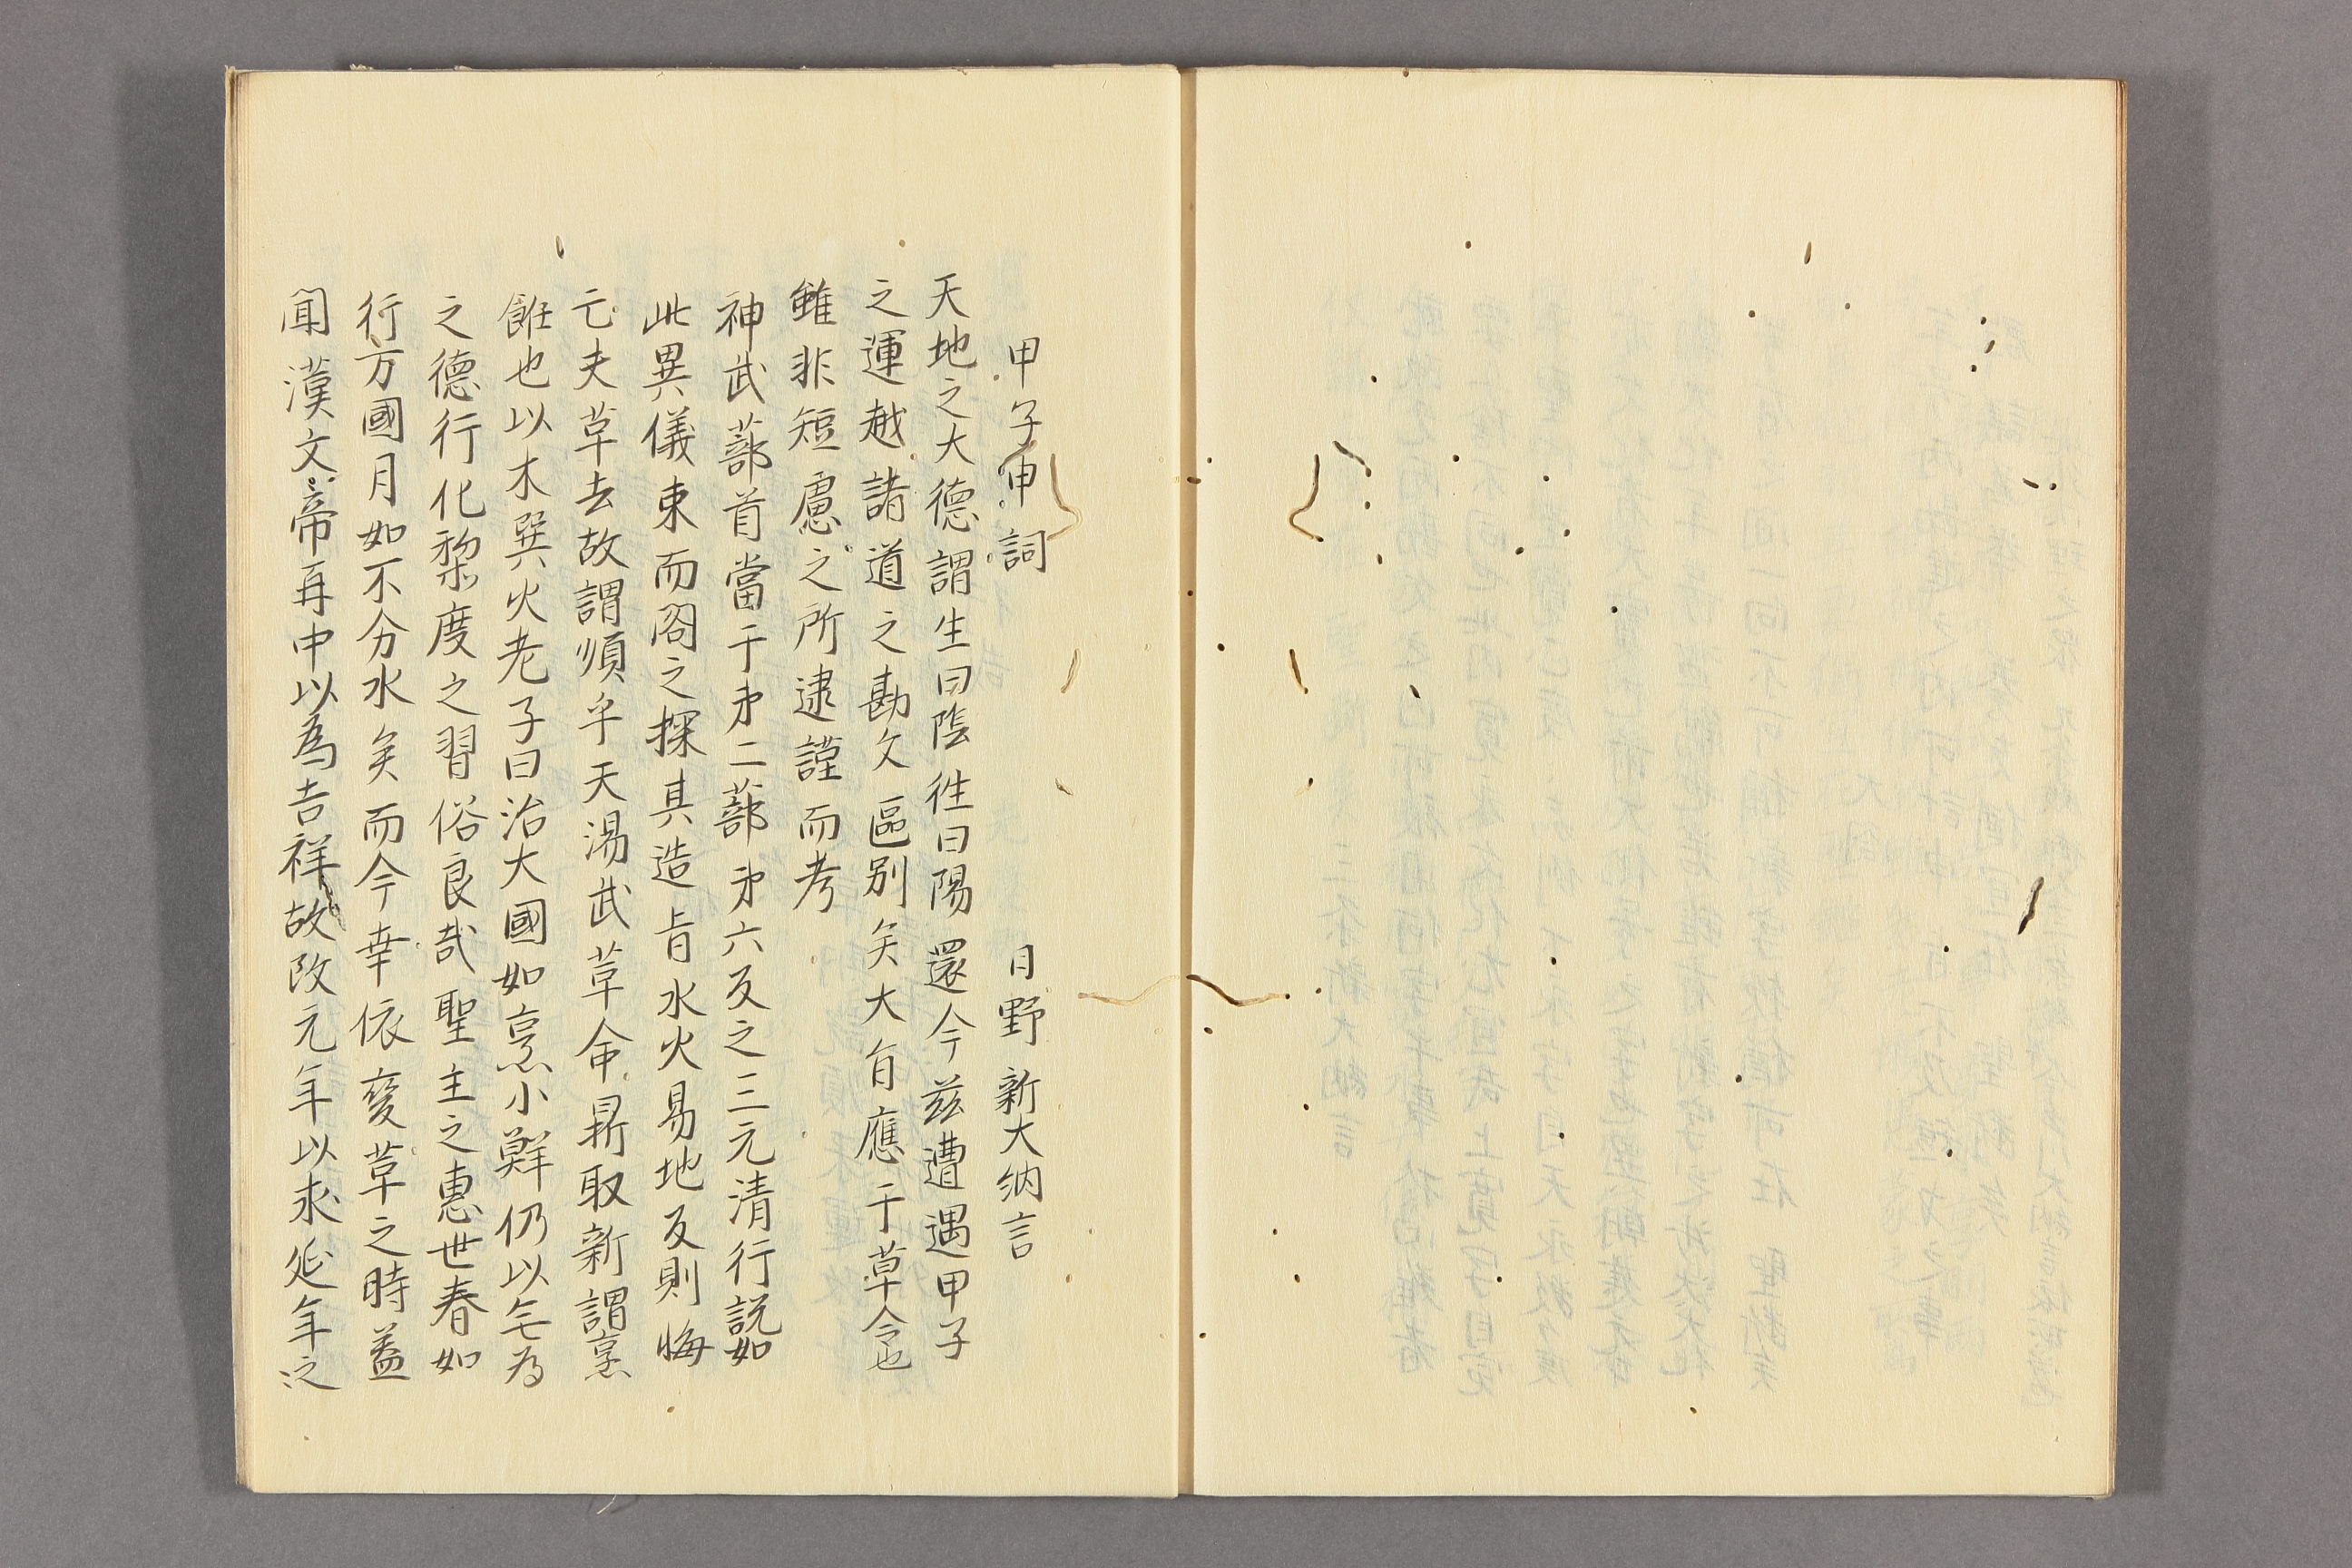 甲子申詞　日野新大納言
天地之大德謂生曰陰徃曰陽還今茲遭遇甲子
之運越諸道之勘文區別矣大旨應于革令也
雖非短慮之所逮謹而考
神武蔀首當于第二蔀第六反之三元清行説如
此異儀束而閣之探其造旨水火易地反則悔
亡夫革去故謂順乎天湯武革命鼎取新謂烹
飪也以木巽火老子曰治大國如烹小鮮仍以宅為
之德行化黎庶之習俗良哉聖主之惠世春如
行万國月如不分水矣而今幸依變革之時蓋
聞漢文帝再中以為吉祥故改元年以求延年之